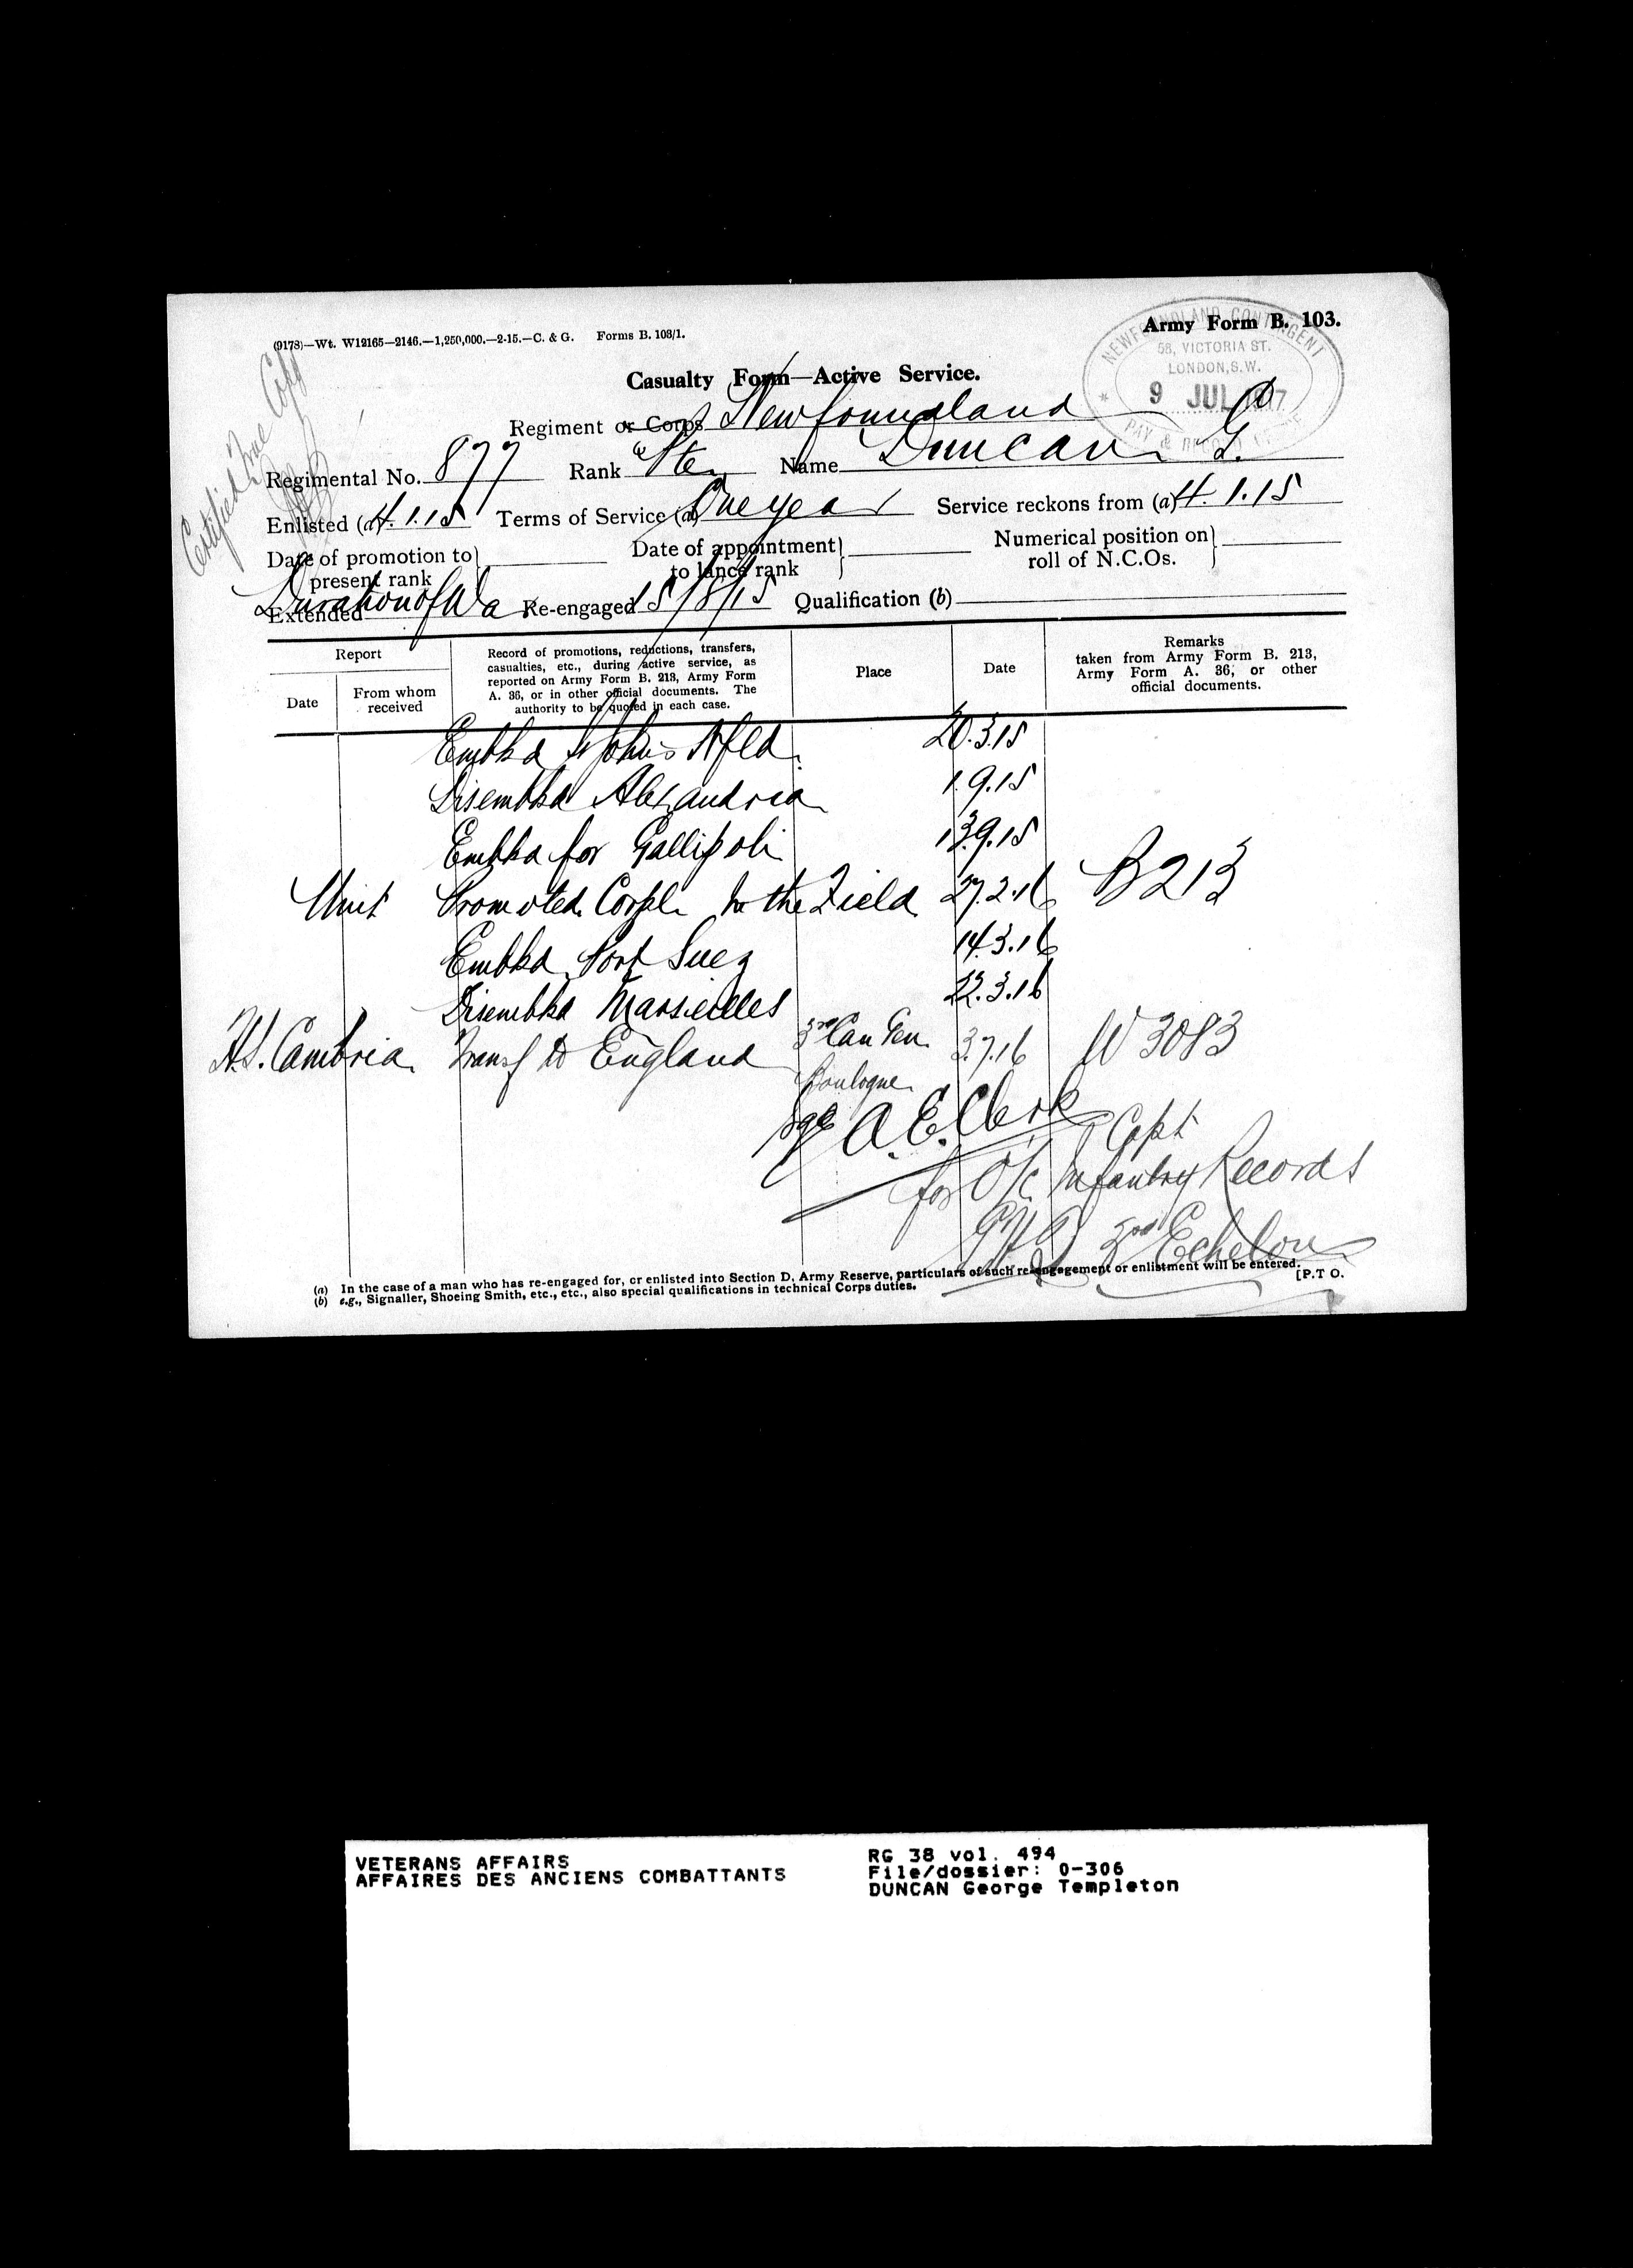 (9178)—Wt. W12165—2146.—1,250,000.—2-15.—C. & G. Forms B. 103/1.
Army Form B. 103.
NEWFOUNDLAND CONTINGENT
58, VICTORIA ST.
LONDON, S.W.
9 JUL 1917
PAY & RECORD
Certified True Copy
Casualty Form—Active Service.
Regiment or Corps Newfoundland
Regimental No. 877 Rank Pte Name Duncan G.
Enlisted (a) 4.1.15 Terms of Service (a) One year Service reckons from (a) 4.1.15
Date of promotion to present rank
Date of appointment to lance rank
Numerical position on roll of N.C.Os.
Extended Duration of Wa Re-engaged 15/8/15 Qualification (b)
Report
Date
From whom received
Record of promotions, reductions, transfers,
casualties, etc., during active service, as
reported on Army Form B. 213, Army Form
A. 36, or in other official documents. The
authority to be quoted in each case.
Place
Date
Remarks
taken from Army Form B. 213,
Army Form A. 36, or other
official documents.
Embkd St Johns Nfld. 20.3.15
Disembkd Alexandria 1.9.15
Embkd for Gallipoli 13.9.15
Unit Promoted Corpl In the Field 27.2.16 B213
Embkd Port Suez 14.3.16
Disembkd Marseilles 22.3.16
H.S. Cambria Transf to England 3rd Can Gen. 3.7.16 W 3083
Boulogne
Sgd A. E. Clerk
Capt
for O/c Infantry Records
GHQ 3rd Echelon
(a) In the case of a man who has re-engaged for, or enlisted into Section D, Army Reserve, particulars of such re-engagement or enlistment will be entered.
(b) e.g., Signaller, Shoeing Smith, etc., etc., also special qualifications in technical Corps duties.
[P.T O.
VETERANS AFFAIRS
AFFAIRES DES ANCIENS COMBATTANTS
RG 38 vol. 494
File/dossier: 0-306
DUNCAN George Templeton